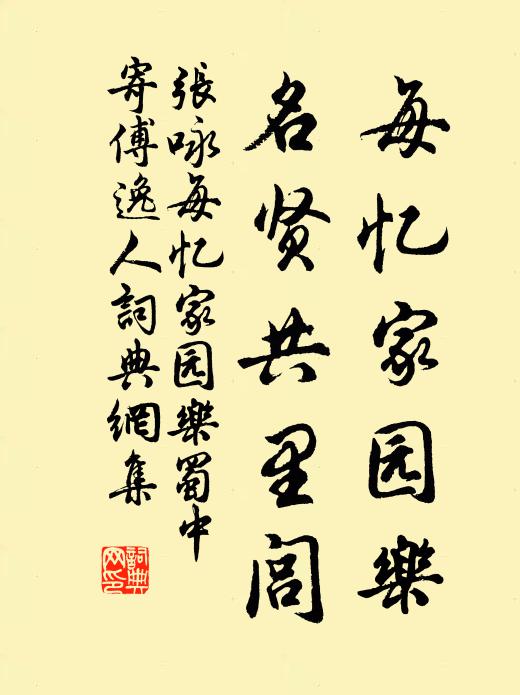 每忆家园樂
名贤共里闾
張咏每忆家园樂蜀中
寄傅逸人詞典網集
詞典网印